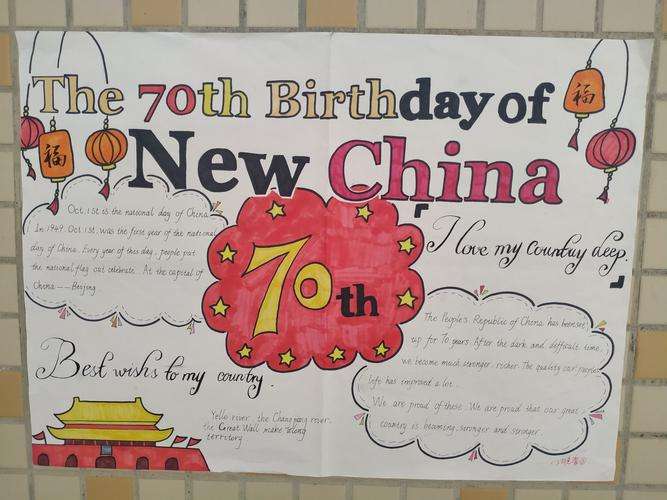 The 70th Birthday of
New China
福
福
Oct. 1st is the national day of China.
In 1949. Oct. 1st. was the first year of the national
day of China. Every year of this day, people put
the national flag out celebrate. At the capital of
China -- Beijing
70th
I love my country deep.
Best wishes to my country.
The People's Republic of China has been set
up for 70 years. After the dark and difficult time,
we become much stronger, richer. The quality our
life has improved a lot...
We are proud of these. We are proud that our great
country is becoming stronger and stronger.
Yello river, the Chang river,
the Great Wall make
territory